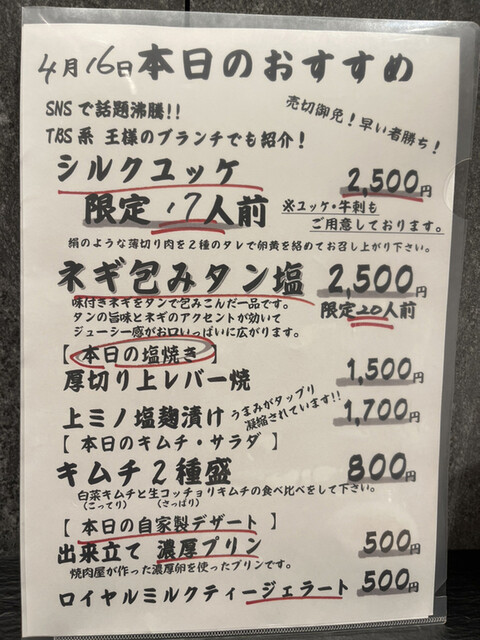 4月16日本日のおすすめ
SNSで話題沸騰!!
売切御免！早い者勝ち！
TBS系 王様のブランチでも紹介！
シルクユッケ 2,500円
限定17人前 ※ユッケ・牛刺も
ご用意しております。
絹のような薄切り肉を2種のタレで卵黄を絡めてお召し上がり下さい。
ネギ包みタン塩 2,500円
味付きネギをタンで包みこんだ一品です。
限定20人前
タンの旨味とネギのアクセントが効いて
ジューシー感がお口いっぱいに広がります。
【本日の塩焼き】
厚切り上レバー焼 1,500円
上ミノ塩麹漬け うまみがタップリ
凝縮されています!! 1,700円
【本日のキムチ・サラダ】
キムチ2種盛 800円
白菜キムチと生コッチョリキムチの食べ比べをして下さい。
(こってり) (さっぱり)
【本日の自家製デザート】
出来立て 濃厚プリン 500円
焼肉屋が作った濃厚卵を使ったプリンです。
ロイヤルミルクティージェラート 500円